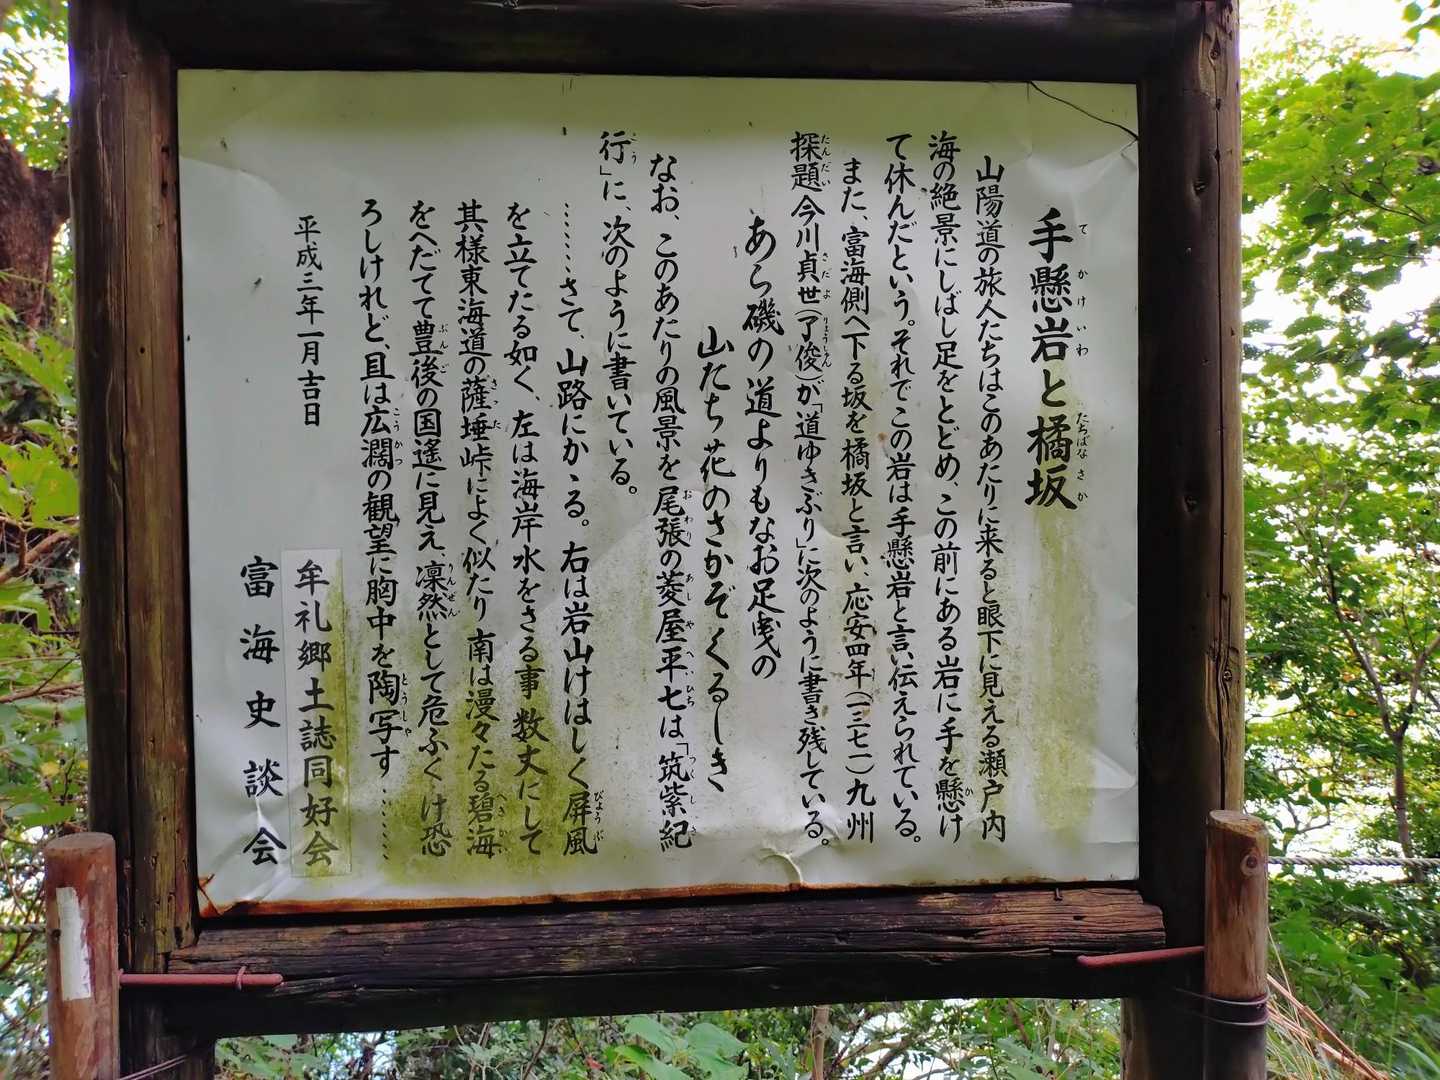 手懸岩と橘坂
てかけいわ
たちばなさか
山陽道の旅人たちはこのあたりに来ると眼下に見える瀬戸内
海の絶景にしばし足をとどめ、この前にある岩に手を懸け
か
て休んだという。それでこの岩は手懸岩と言い伝えられている。
また、富海側へ下る坂を橘坂と言い、応安四年(一三七一)九州
探題今川貞世(了俊)が「道ゆきぶり」に次のように書き残している。
たんだい
さだよ
りょうしゅん
あら磯の道よりもなお足曵の
山たち花のさかぞくるしき
なお、このあたりの風景を尾張の菱屋平七は「筑紫紀
おわり
あしやへいひち
つくしき
行」に、次のように書いている。
こう
……さて、山路にかゝる。右は岩山けはしく屏風
びょうぶ
を立てたる如く、左は海岸水をさる事 数丈にして
其様東海道の薩埵峠によく似たり 南は漫々たる碧海
さった
へきかい
をへだてて豊後の国遙に見え、凜然として危ふくけ恐
ぶんご
りんぜん
ろしけれど、且は広濶の観望に胸中を陶写す……
こうかつ
とうしゃ
平成三年一月吉日
牟礼郷土誌同好会
富海史談会